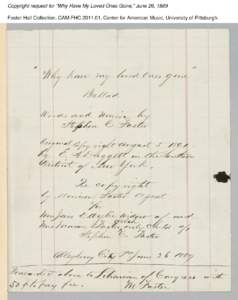 Copyright request for "Why Have My Loved Ones Gone," June 26, 1889
Foster Hall Collection, CAM.FHC.2011.01, Center for American Music, University of Pittsburgh.
"Why have my loved ones gone"
Ballad.
Words and Music by
Stephen C. Foster
Original Copyright August 5 1861
by in the Southern
District of New York.
To be copyright
by Morrison Foster Agent
for
widow of and
Marion Foster only child of
Stephen C. Foster
Allegheny City Pa June 26 1889
above to Librarian of Congress with
50 cts pay fee. M. Foster